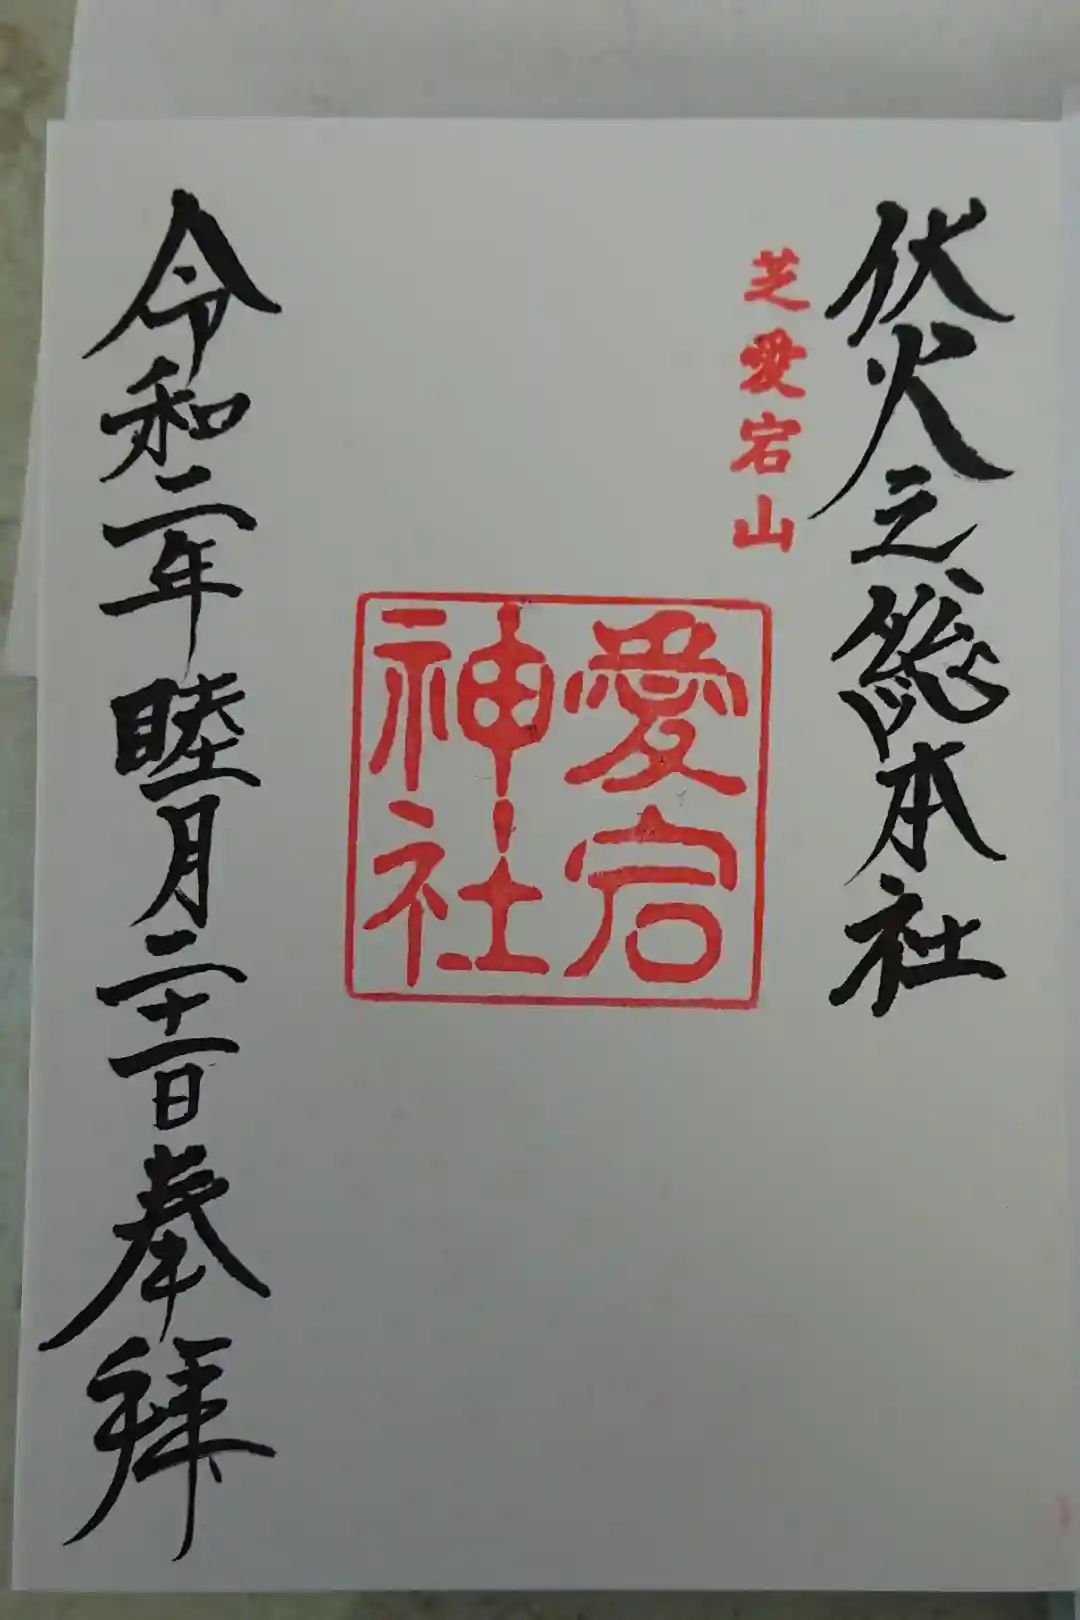 伏火之総本社
芝愛宕山
愛宕
神社
令和二年睦月二十一日奉拝